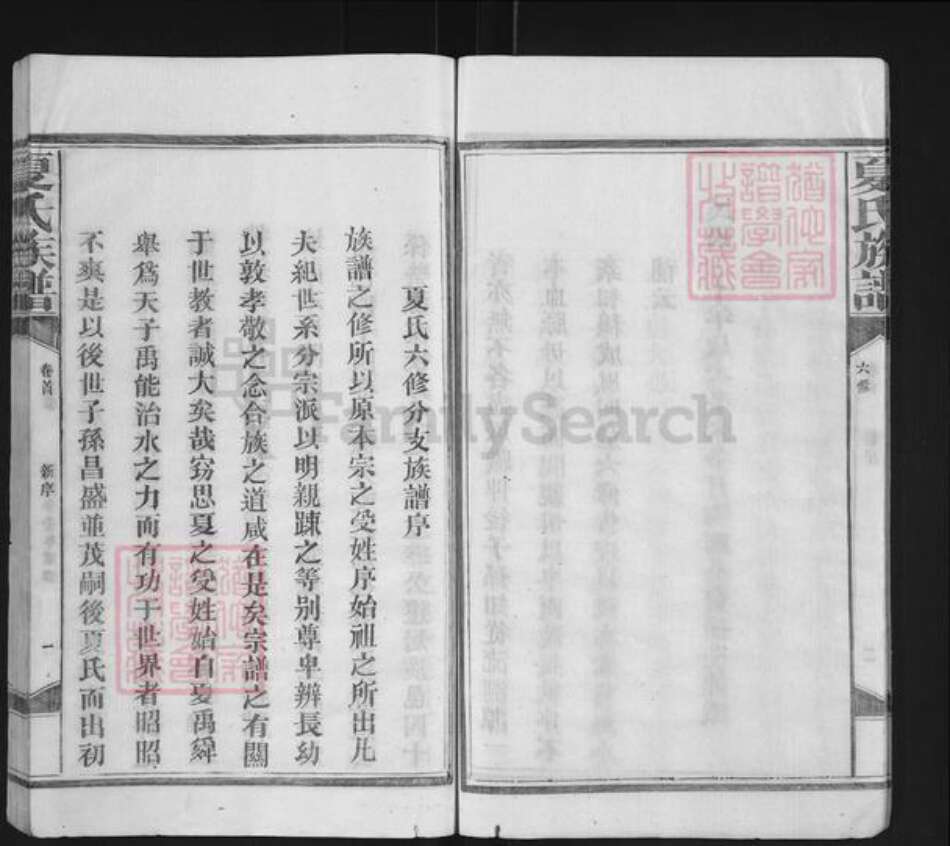 夏氏族譜
六修
夏氏六修分支族譜序
族譜之修所以原本宗之受姓序始祖之所出凡
夫紀世系分宗派以明親踈之等别尊卑辨長幼
以敦孝敬之念合族之道咸在是矣宗譜之有關
于世教者誠大矣哉窃思夏之受姓始自夏禹舜
舉爲天子禹能治水之力而有功于世界者昭昭
不爽是以後世子孫昌盛並茂嗣後夏氏而出初
夏氏族譜
卷首
新序
一
FamilySearch